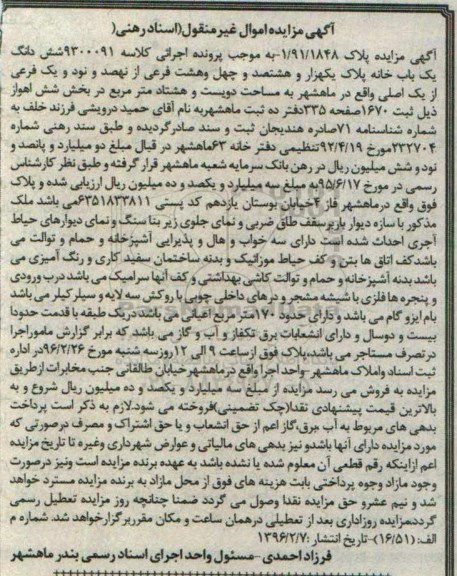 آگهی مزایده اموال غیر منقول(اسناد رهنی(
آگهی مزایده پلاک ۱/۹۱/۱۸۴۸-به موجب پرونده اجرائی کلاسه ۹۳۰۰۰۹۱شش دانگ
یک باب خانه پلاک یکهزار و هشتصد و چهل وهشت فرعی از نهصد و نود و یک فرعی
از یک اصلی واقع در ماهشهر به مساحت دویست و هشتاد متر مربع در بخش شش اهواز
ذیل ثبت ۱۶۷۰صفحه ۳۳۵دفتر ده ثبت ماهشهربه نام آقای حمید درویشی فرزند خلف به
شماره شناسنامه ۷۱صادره هندیجان ثبت و سند صادرگردیده و طبق سند رهنی شماره
۲۳۲۷۰۴مورخ ۹۲/۴/۱۹تنظیمی دفتر خانه ۶۳ماهشهر در قبال مبلغ دو میلیارد و پانصد و
نود و شش میلیون ریال در رهن بانک سرمایه شعبه ماهشهر قرار گرفته و طبق نظر کارشناس
رسمی در مورخ ۹۵/۶/۱۷به مبلغ سه میلیارد و یکصد و ده میلیون ریال ارزیابی شده و پلاک
فوق واقع درماهشهر فاز ۴خیابان بوستان یازدهم کد پستی ۶۳۵۱۸۳۳۸۱۱می باشد ملک
مذکور با سازه دیوار باربرسقف طاق ضربی و نمای جلوی زیر بنا سنگ و نمای دیوارهای حیاط
آجری احداث شده است دارای سه خواب و هال و پذیرایی آشپزخانه و حمام و توالت می
باشدکف اتاق ها بتن و کف حیاط موزائیک و بدنه ساختمان سفید کاری و رنگ آمیزی می
باشد بدنه آشپزخانه و حمام و توالت کاشی بهداشتی و کف آنها سرامیک می باشد درب ورودی
و پنجره ها فلزی با شیشه مشجر و درهای داخلی چوبی با روکش سه لایه و سیلر کیلر می باشد
بام ایزو گام می باشد و دارای حدود ۱۷۰متر مربع اعیانی می باشد دریک طبقه با قدمت حدودا
بیست و دوسال و دارای انشعابات برق تکفاز و آب و گاز می باشد که برابر گزارش ماموراجرا
در تصرف مستاجر می باشد،پلاک فوق ازساعت ۹ الی ۱۲روزسه شنبه مورخ ۹۶/۲/۲۶در اداره
ثبت اسناد واملاک ماهشهر -واحد اجرا واقع درماهشهرخیابان طالقانی جنب مخابرات ازطریق
مزایده به فروش می رسد مزایده از مبلغ سه میلیارد و یکصد و ده میلیون ریال شروع و به
بالاترین قیمت پیشنهادی نقدا(چک تضمینی)فروخته می شود.لازم به ذکر است پرداخت
بدهی های مربوط به آب ،برق،گاز اعم از حق انشعاب و یا حق اشتراک و مصرف درصورتی که
مورد مزایده دارای آنها باشدو نیز بدهی های مالیاتی و عوارض شهرداری وغیره تا تاریخ مزایده
اعم ازاینکه رقم قطعی آن معلوم شده یا نشده باشد به عهده برنده مزایده است ونیز درصورت
وجود مازاد وجوه پرداختی بابت هزینه های فوق از محل مازاد به برنده مزایده مسترد خواهد
شد و نیم عشرو حق مزایده نقدا وصول می گردد ضمنا چنانچه روز مزایده تعطیل رسمی
گردد،مزایده روزاداری بعد از تعطیلی درهمان ساعت و مکان مقرربرگزارخواهد شد. شماره م
الف:(۱۶/۵۱)-تاریخ انتشار :۱۳۹۶/۲/۷
فرزاد احمدی -مسئول واحد اجرای اسناد رسمی بندر ماهشهر